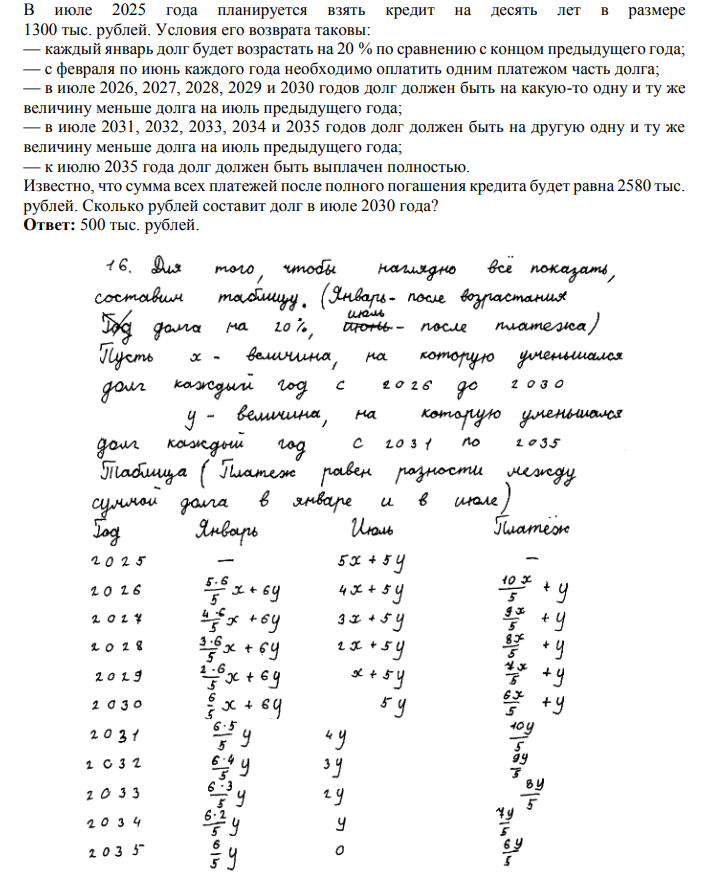 В июле 2025 года планируется взять кредит на десять лет в размере
1300 тыс. рублей. Условия его возврата таковы:
— каждый январь долг будет возрастать на 20 % по сравнению с концом предыдущего года;
— с февраля по июнь каждого года необходимо оплатить одним платежом часть долга;
— в июле 2026, 2027, 2028, 2029 и 2030 годов долг должен быть на какую-то одну и ту же
величину меньше долга на июль предыдущего года;
— в июле 2031, 2032, 2033, 2034 и 2035 годов долг должен быть на другую одну и ту же
величину меньше долга на июль предыдущего года;
— к июлю 2035 года долг должен быть выплачен полностью.
Известно, что сумма всех платежей после полного погашения кредита будет равна 2580 тыс.
рублей. Сколько рублей составит долг в июле 2030 года?
Ответ: 500 тыс. рублей.
16. Для того, чтобы наглядно всё показать,
составим таблицу. (Январь - после возрастания
Год долга на 20%, июль июнь - после платежа)
Пусть x - величина, на которую уменьшался
долг каждый год с 2026 до 2030
y - величина, на которую уменьшался
долг каждый год с 2031 по 2035
Таблица (Платеж равен разности между
суммой долга в январе и в июле)
Год Январь Июль Платёж
2025 — 5x + 5y —
2026 5·6/5 x + 6y 4x + 5y 10x/5 + y
2027 4·6/5 x + 6y 3x + 5y 9x/5 + y
2028 3·6/5 x + 6y 2x + 5y 8x/5 + y
2029 2·6/5 x + 6y x + 5y 7x/5 + y
2030 6/5 x + 6y 5y 6x/5 + y
2031 6·5/5 y 4y 10y/5
2032 6·4/5 y 3y 9y/5
2033 6·3/5 y 2y 8y/5
2034 6·2/5 y y 7y/5
2035 6/5 y 0 6y/5